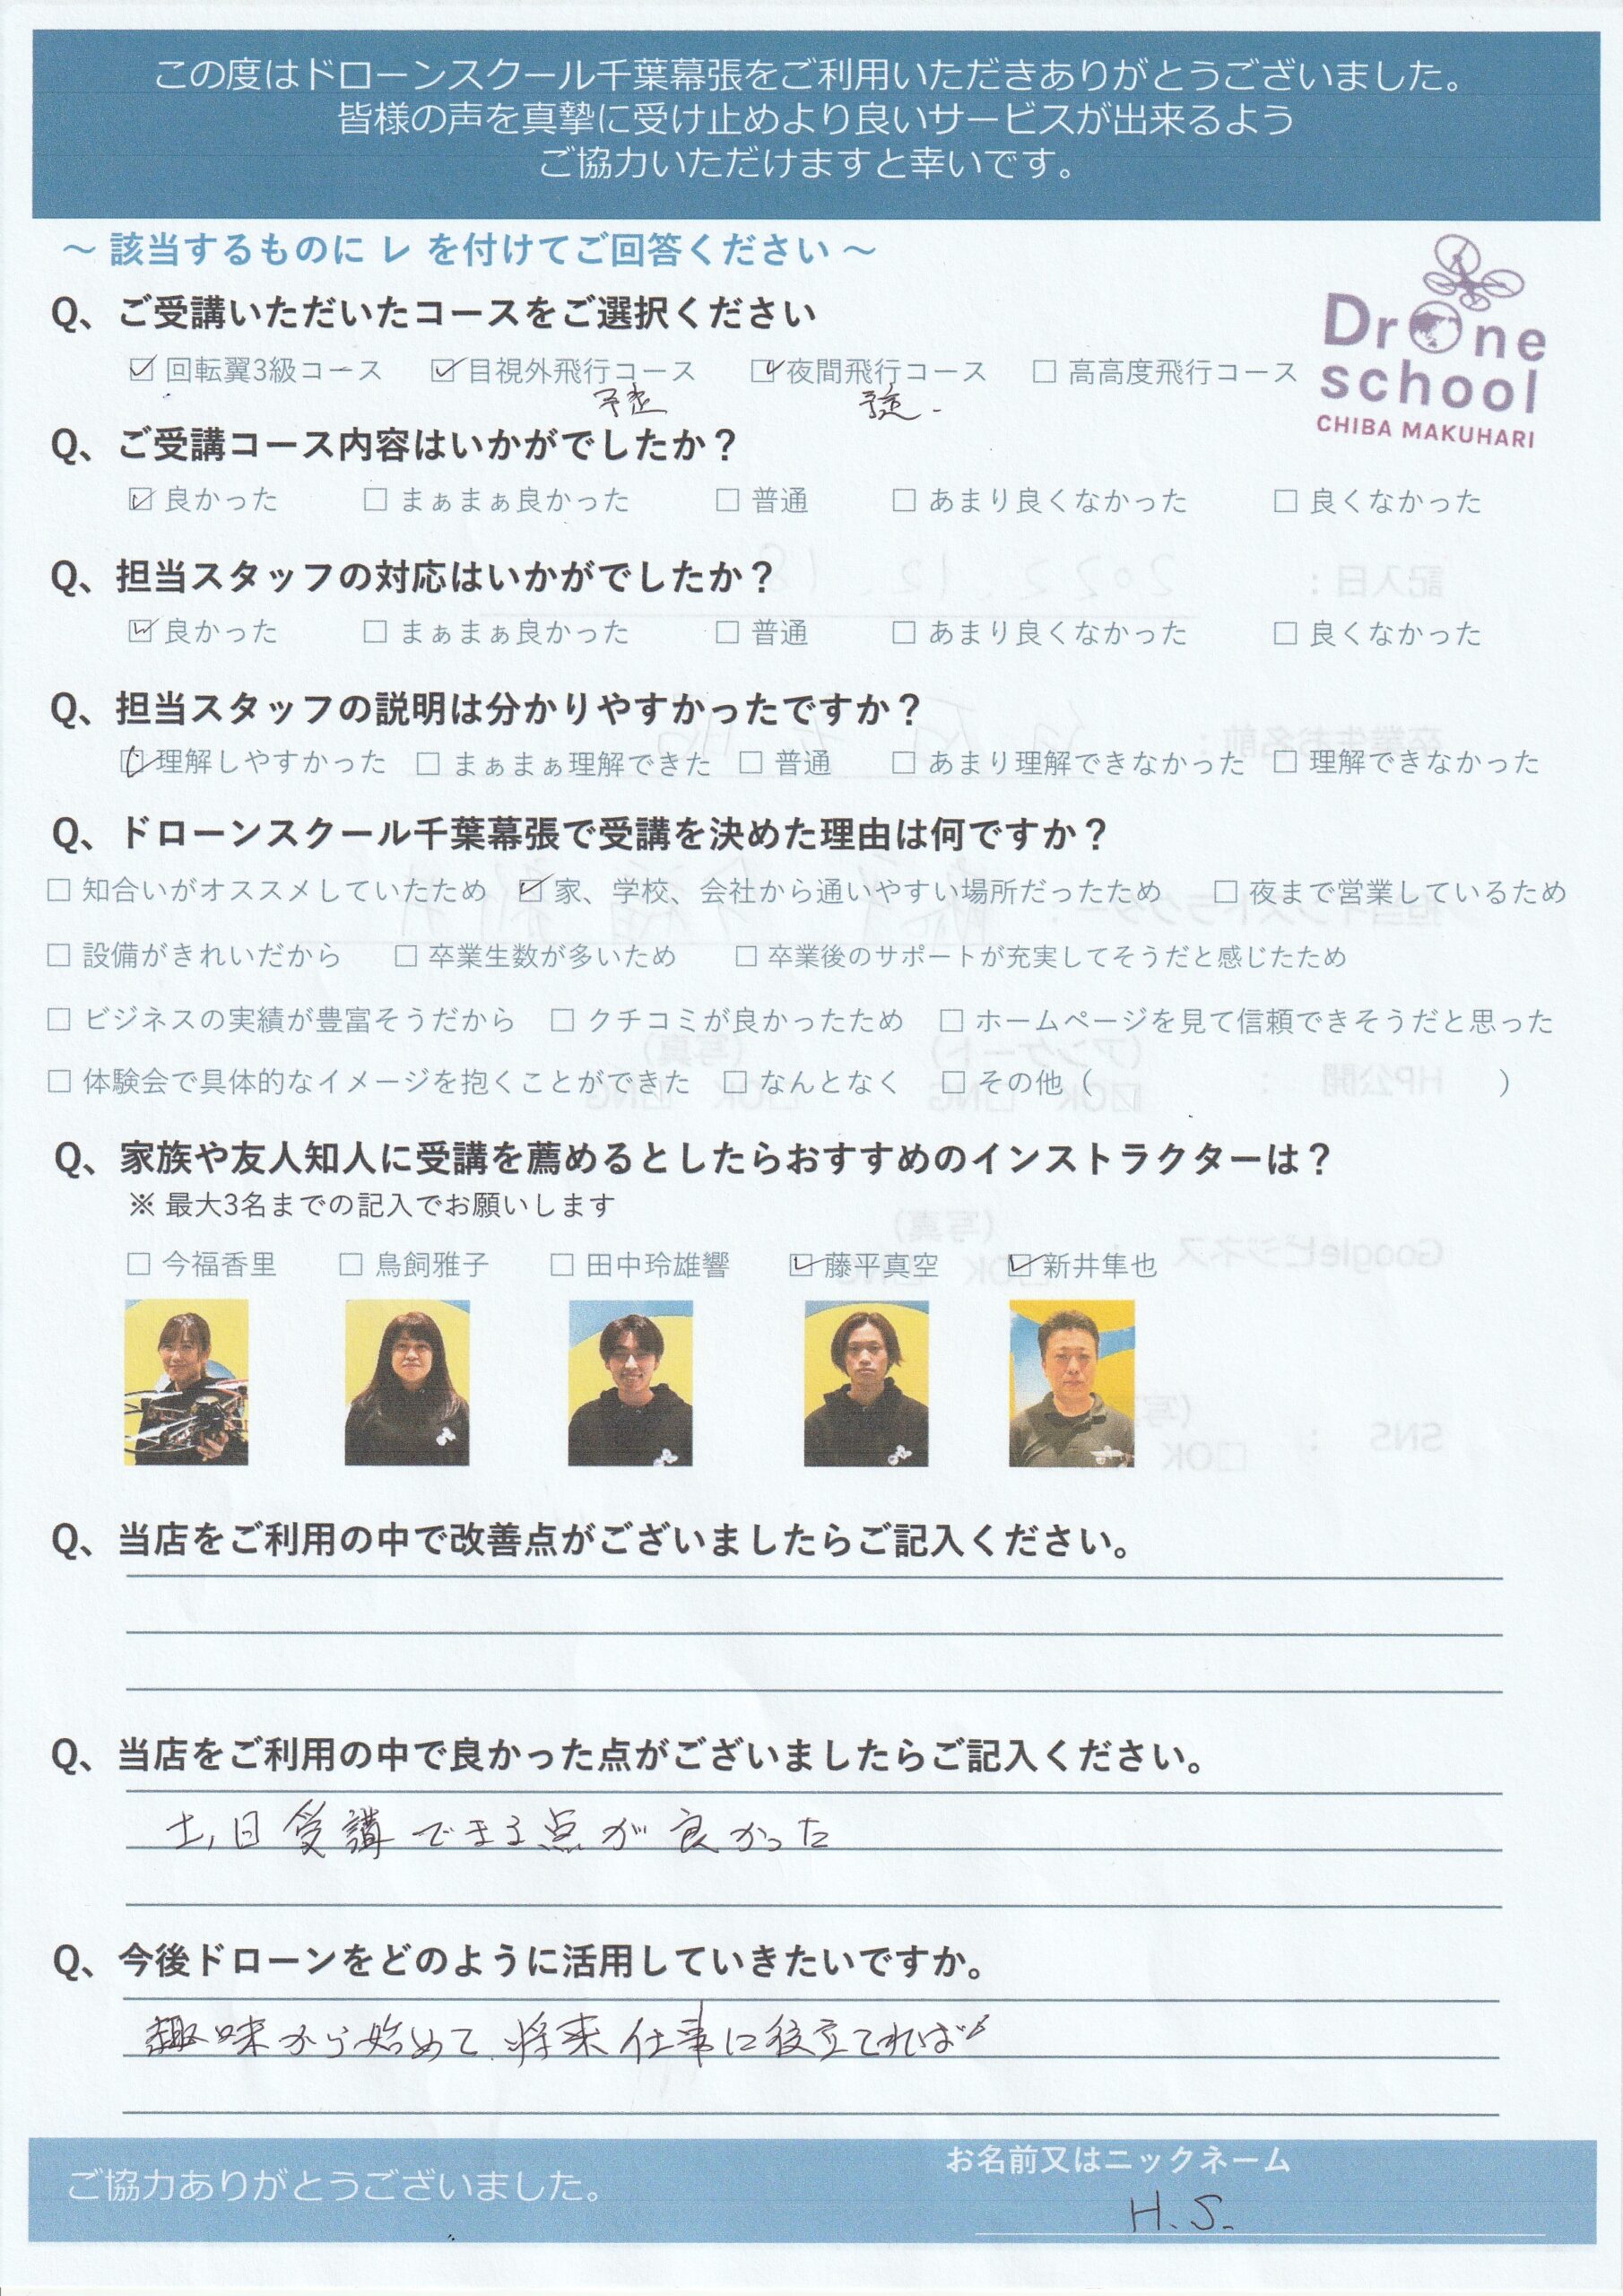 この度はドローンスクール千葉幕張をご利用いただきありがとうございました。
皆様の声を真摯に受け止めより良いサービスが出来るよう
ご協力いただけますと幸いです。
～ 該当するものに レ を付けてご回答ください ～
Drone
school
CHIBA MAKUHARI
Q、ご受講いただいたコースをご選択ください
☑ 回転翼3級コース ☑ 目視外飛行コース ☑ 夜間飛行コース ☐ 高高度飛行コース
予定 予定.
Q、ご受講コース内容はいかがでしたか？
☑ 良かった ☐ まぁまぁ良かった ☐ 普通 ☐ あまり良くなかった ☐ 良くなかった
Q、担当スタッフの対応はいかがでしたか？
☑ 良かった ☐ まぁまぁ良かった ☐ 普通 ☐ あまり良くなかった ☐ 良くなかった
Q、担当スタッフの説明は分かりやすかったですか？
☑ 理解しやすかった ☐ まぁまぁ理解できた ☐ 普通 ☐ あまり理解できなかった ☐ 理解できなかった
Q、ドローンスクール千葉幕張で受講を決めた理由は何ですか？
☐ 知合いがオススメしていたため ☑ 家、学校、会社から通いやすい場所だったため ☐ 夜まで営業しているため
☐ 設備がきれいだから ☐ 卒業生数が多いため ☐ 卒業後のサポートが充実してそうだと感じたため
☐ ビジネスの実績が豊富そうだから ☐ クチコミが良かったため ☐ ホームページを見て信頼できそうだと思った
☐ 体験会で具体的なイメージを抱くことができた ☐ なんとなく ☐ その他（ ）
Q、家族や友人知人に受講を薦めるとしたらおすすめのインストラクターは？
※ 最大3名までの記入でお願いします
☐ 今福香里 ☐ 鳥飼雅子 ☐ 田中玲雄響 ☑ 藤平真空 ☑ 新井隼也
Q、当店をご利用の中で改善点がございましたらご記入ください。
Q、当店をご利用の中で良かった点がございましたらご記入ください。
土,日受講できる点が良かった
Q、今後ドローンをどのように活用していきたいですか。
趣味から始めて、将来仕事に役立てれば
ご協力ありがとうございました。
お名前又はニックネーム
H.S.